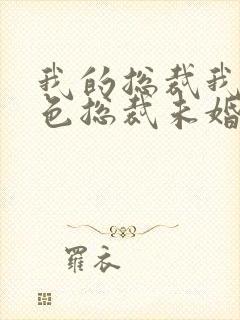 我的总裁我
色总裁未婚
罗衣